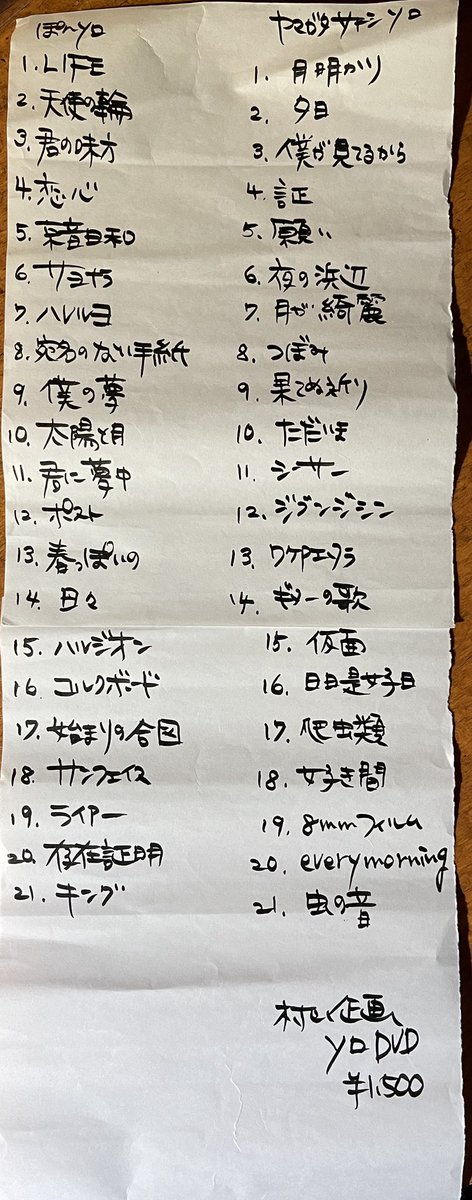 ソロ
1. LIFE
2. 天使の輪
3. 君の味方
4. 恋心
5. 音日和
6. サヨナラ
7. ハレルヨ
8. 宛名のない手紙
9. 僕の夢
10. 太陽と月
11. 君に夢中
12. ポスト
13. 春っぽいの
14. 日々
15. ハルジオン
16. コルクボード
17. 始まりの合図
18. サンフェイス
19. ライアー
20. 存在証明
21. キング
ヤマガタサトシ ソロ
1. 月明かり
2. 夕日
3. 僕が見てるから
4. 証
5. 願い
6. 夜の浜辺
7. 月が綺麗
8. つぼみ
9. 果てぬ祈り
10. ただいま
11. シーサー
12. ジブンジシン
13. ワケアエタラ
14. の歌
15. 仮面
16. 日日是好日
17. 爬虫類
18. 好き間
19. 8mmフィルム
20. everymorning
21. 虫の音
企画
ソロDVD
¥1,500